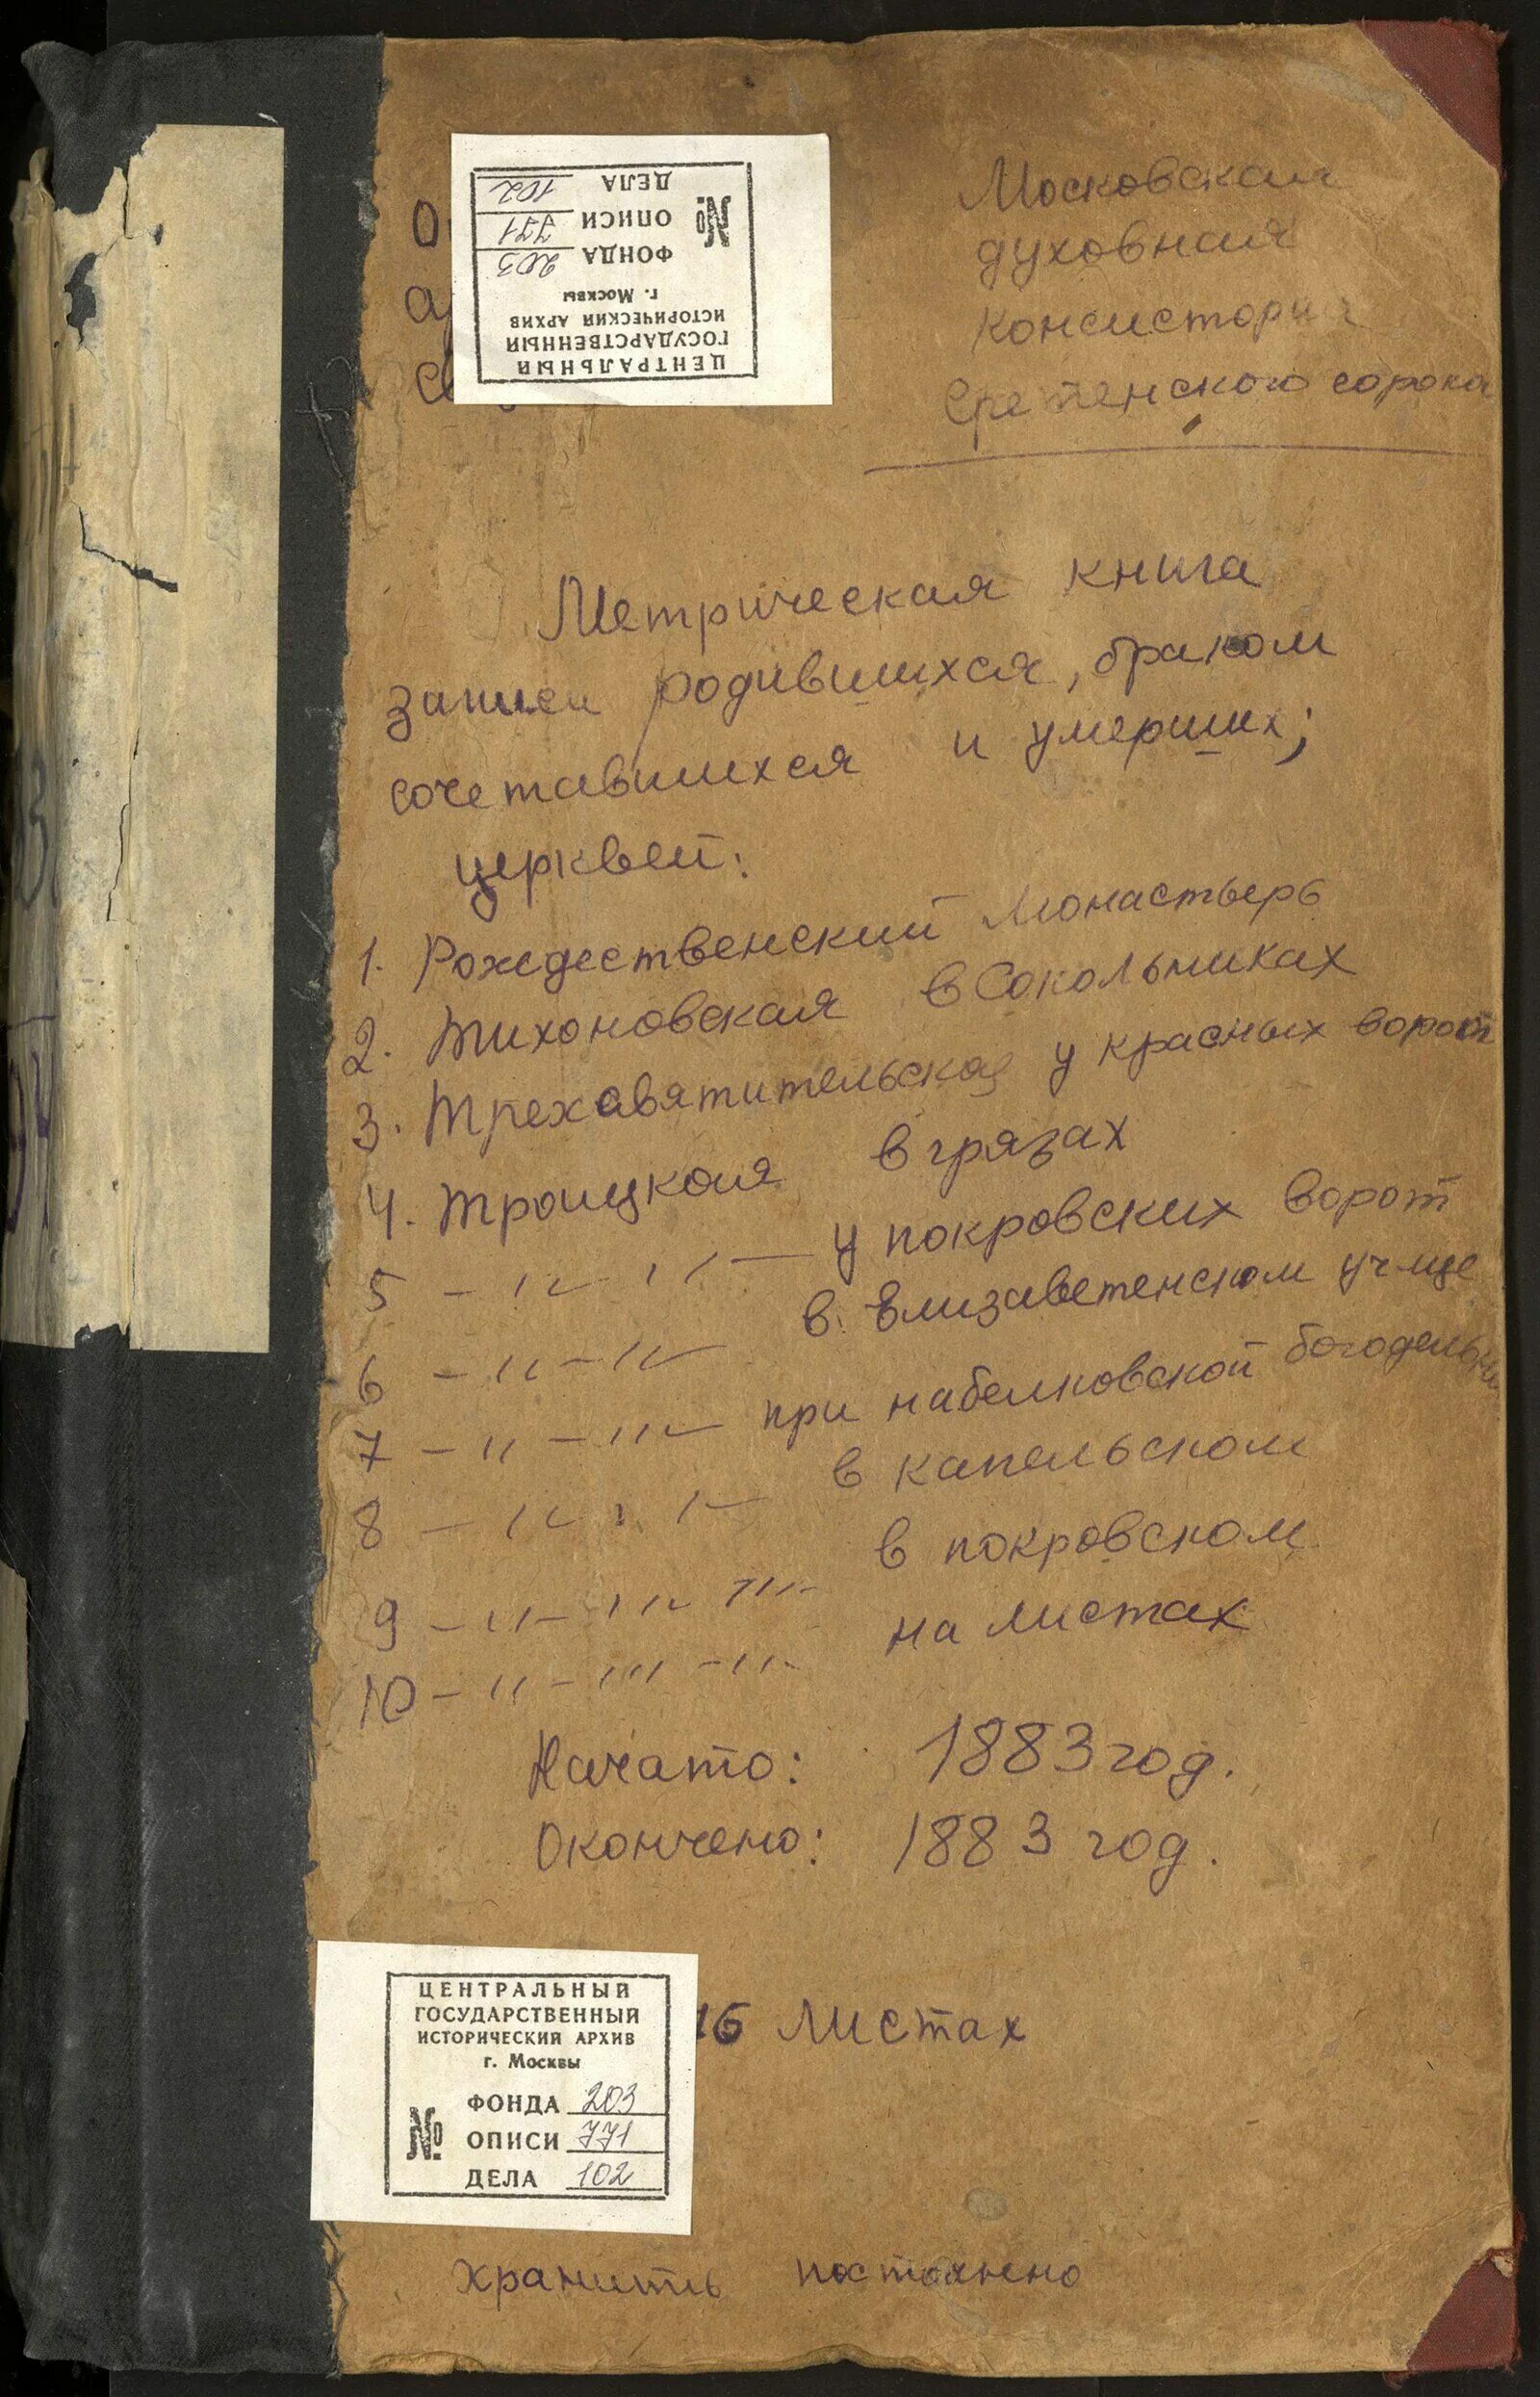 ЦЕНТРАЛЬНЫЙ
ГОСУДАРСТВЕННЫЙ
ИСТОРИЧЕСКИЙ АРХИВ
г. Москвы
№
ФОНДА 203
ОПИСИ 771
ДЕЛА 102
Московская
духовная
консистория
Сретенского сорока
Метрическая книга
записи родившихся, браком
сочетавшихся и умерших;
церквей:
1. Рождественский Монастырь
2. Тихоновская в Сокольниках
3. Трехсвятительская у красных ворот
4. Троицкая в грязах
5 - " - " — у покровских ворот
6 - " - " - в Елизаветенском уч-ще
7 - " - " - при набелковской богодельни
8 - " - " - в капельском
9 - " - " - " - в покровском
10 - " - " - " - на листах
Начато: 1883 год.
Окончено: 1883 год.
16 листах
ЦЕНТРАЛЬНЫЙ
ГОСУДАРСТВЕННЫЙ
ИСТОРИЧЕСКИЙ АРХИВ
г. Москвы
№
ФОНДА 203
ОПИСИ 771
ДЕЛА 102
хранить постоянно